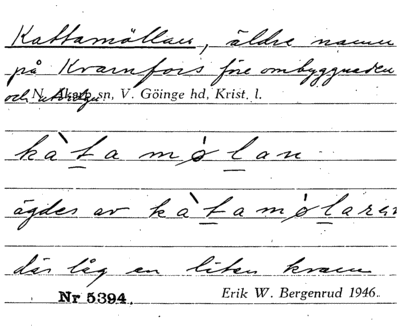 Kattamöllan, äldre namn
på Kvarnfors före ombyggnaden
och
N. Åkarp sn, V. Göinge hd, Krist. l.
kàtamølan
ägdes av kàtamølaren
där låg en liten kvarn
Nr 5394.
Erik W. Bergenrud 1946.